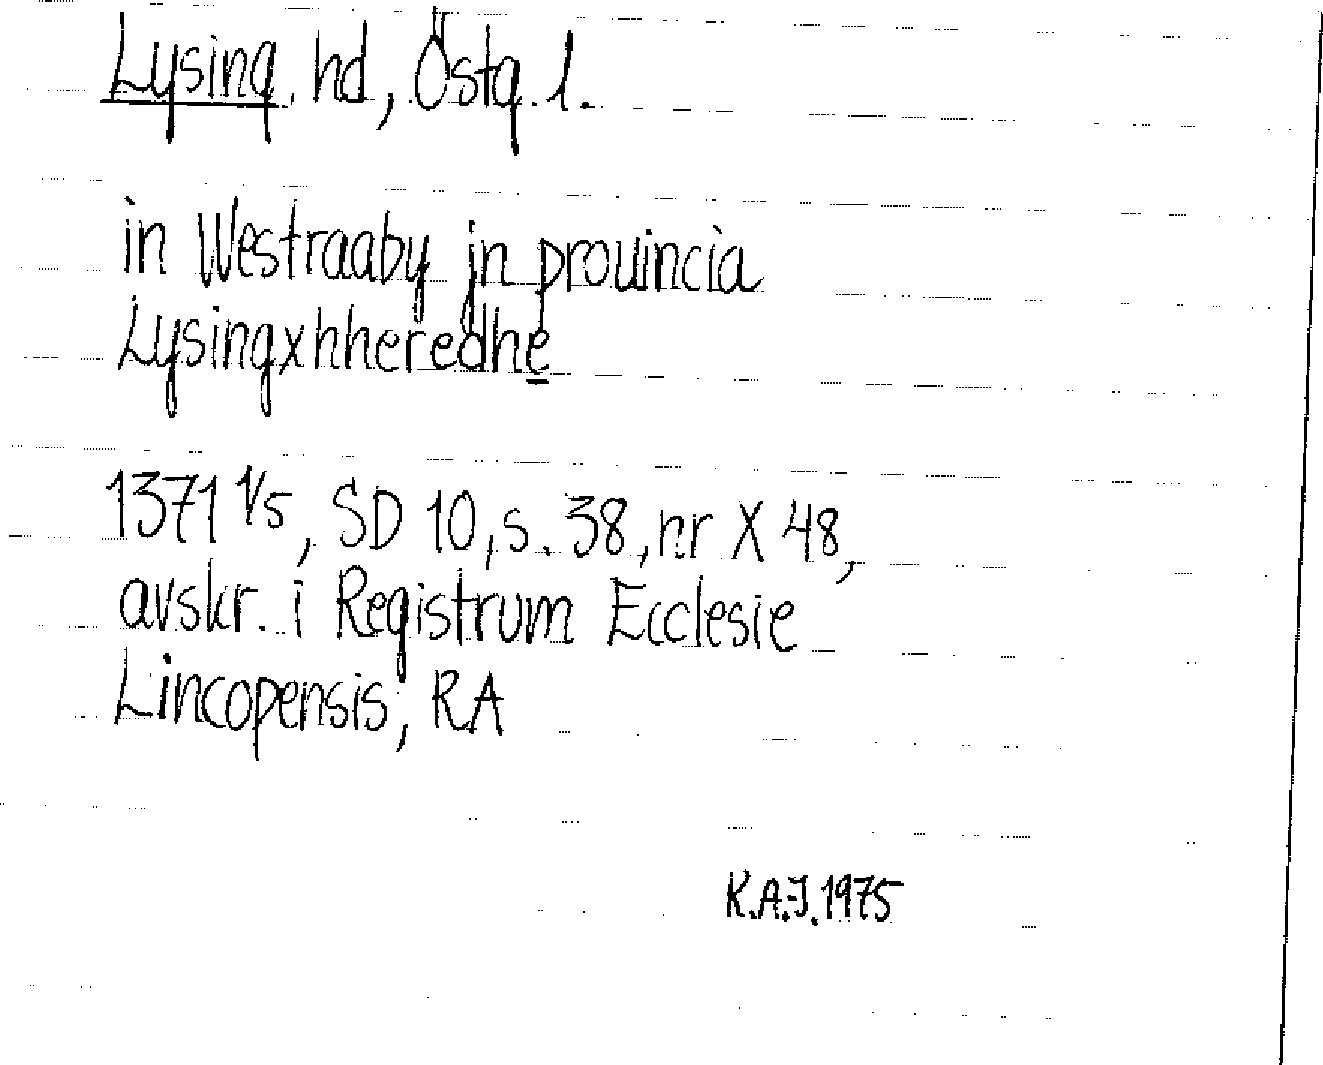 Lysing. hd, Östg. l.
in Westraaby jn prouincia
Lysingxhheredhe
1371 1/5, SD 10, s. 38, nr X 48,
avskr. i Registrum Ecclesie
Lincopensis, RA
K.A.J. 1975